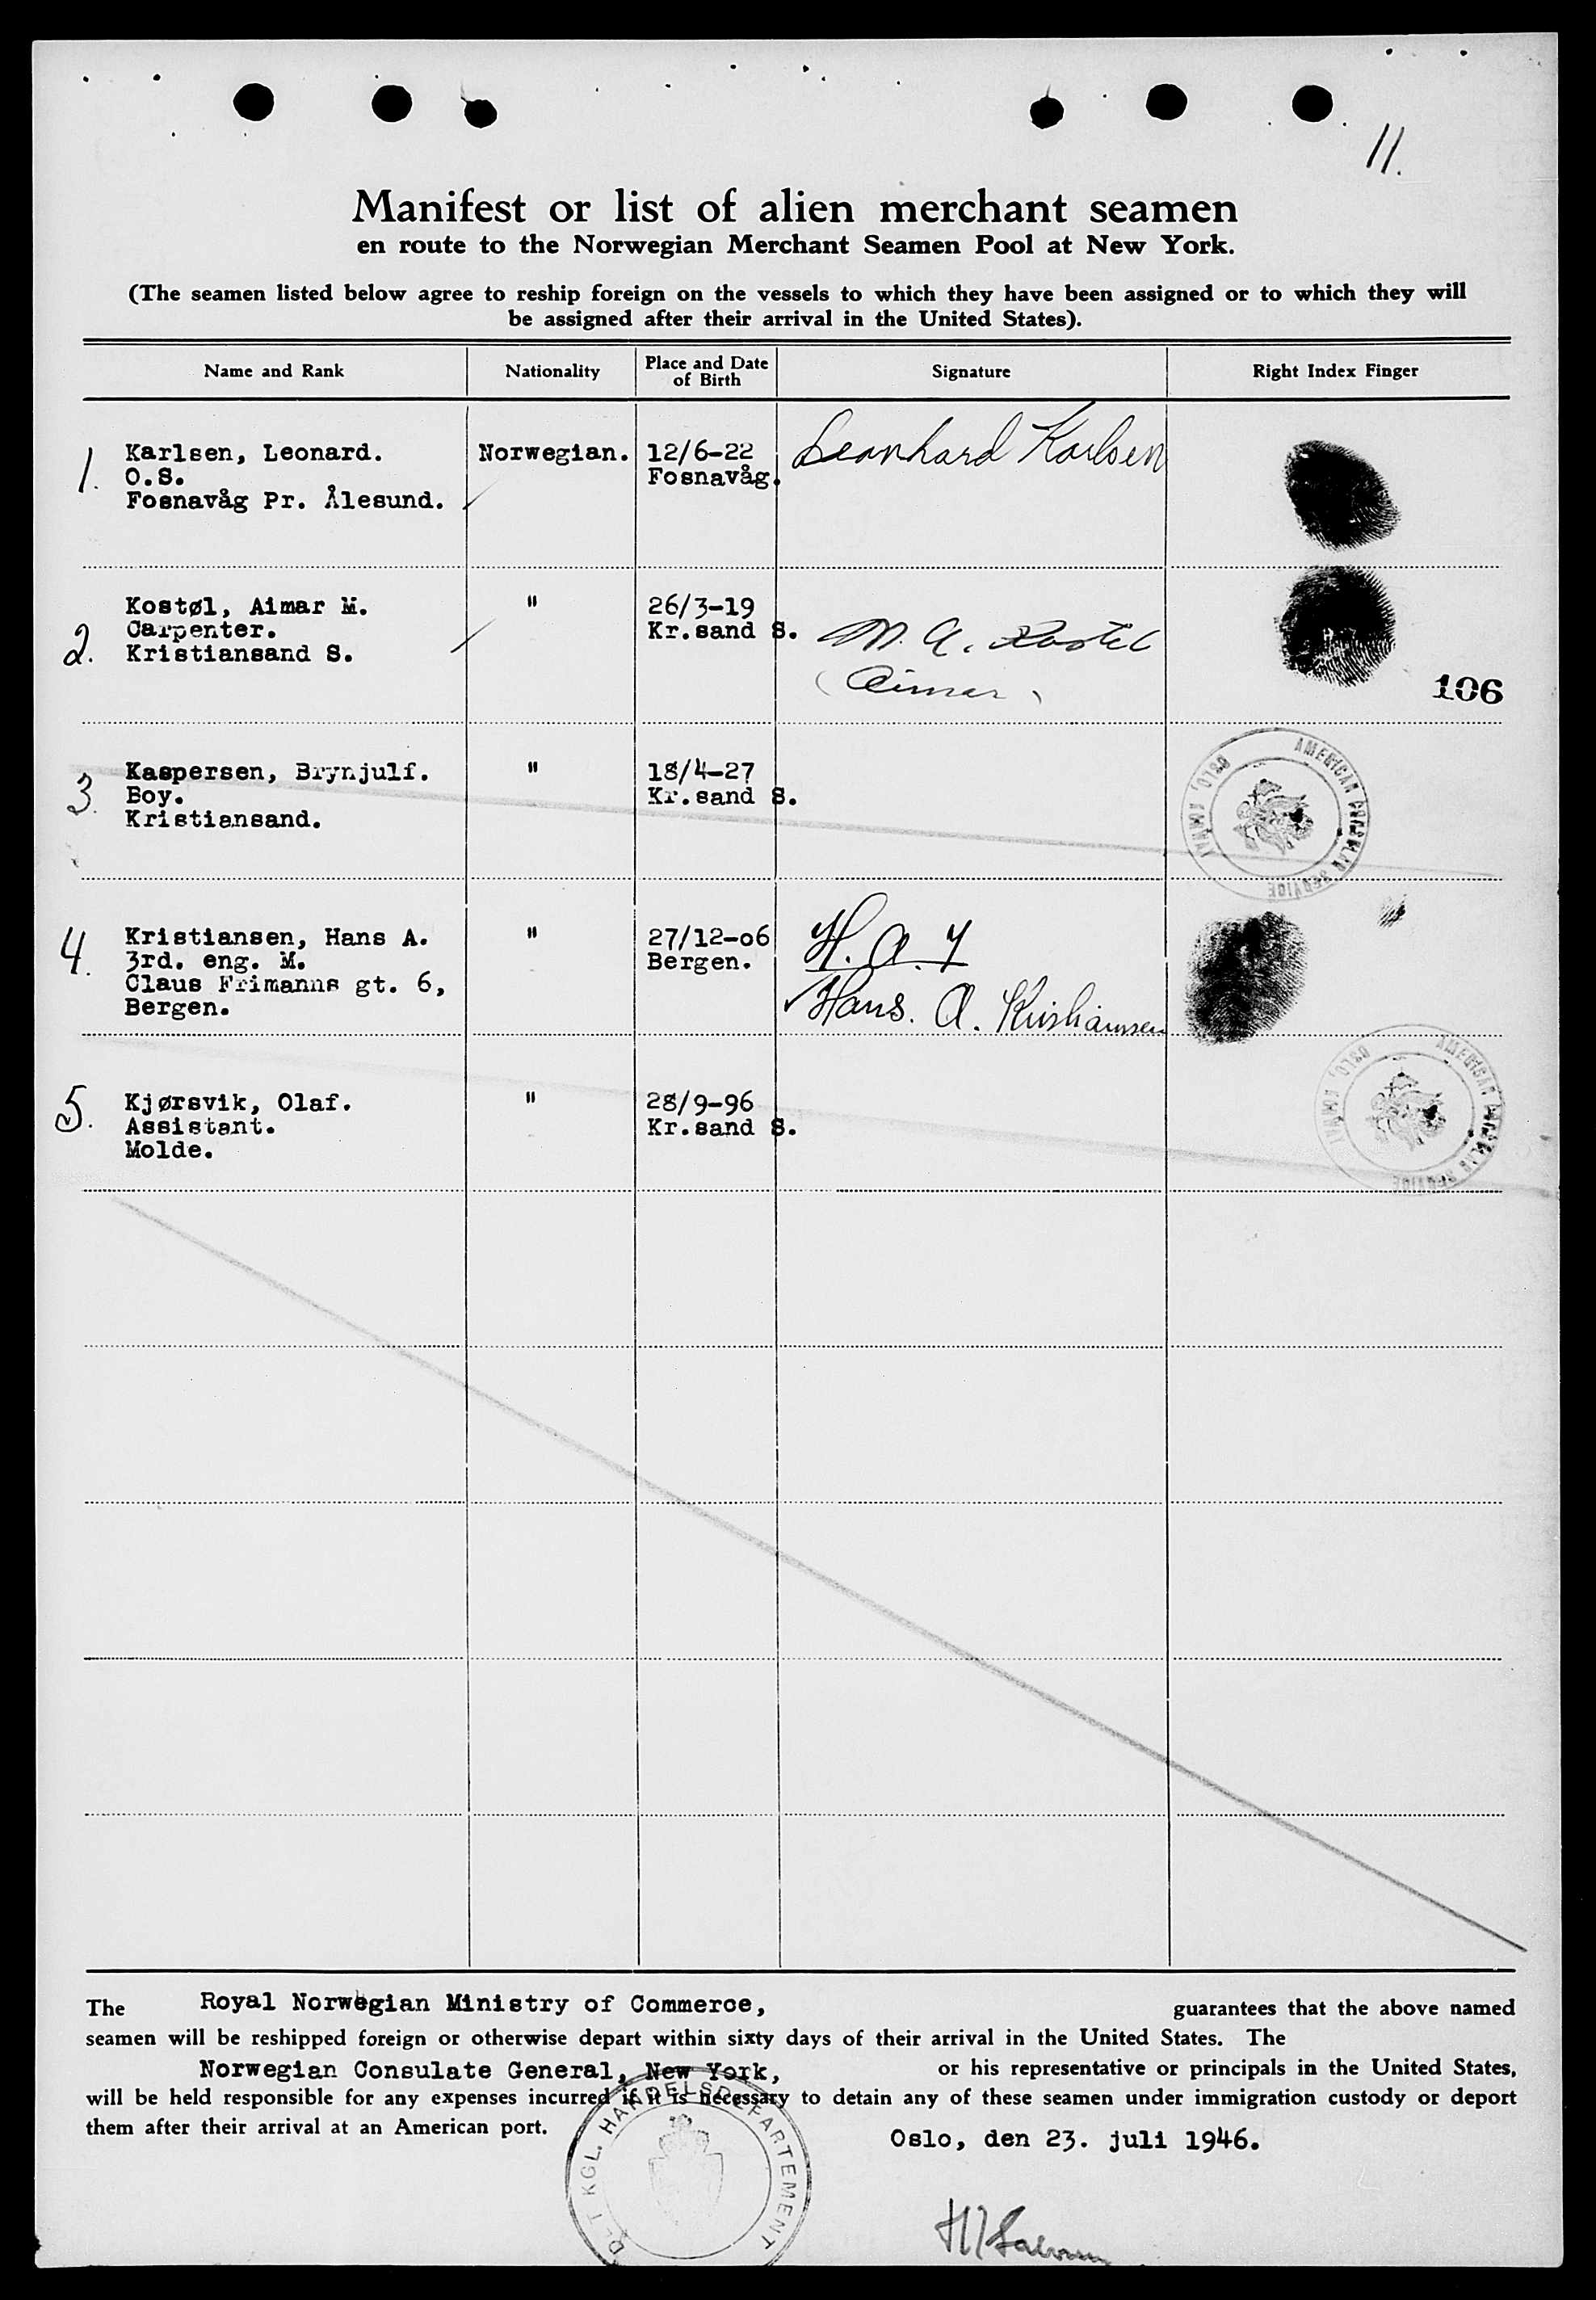 11.
Manifest or list of alien merchant seamen
en route to the Norwegian Merchant Seamen Pool at New York.
(The seamen listed below agree to reship foreign on the vessels to which they have been assigned or to which they will
be assigned after their arrival in the United States).
Name and Rank Nationality Place and Date of Birth Signature Right Index Finger
1. Karlsen, Leonard. Norwegian. 12/6-22 Leonhard Karlsen
O.S. Fosnavåg.
Fosnavåg Pr. Ålesund.
Kostøl, Aimar M. " 26/3-19
2. Carpenter. Kr.sand S. M. A. Kostøl
Kristiansand S.
(Aimar)
106
3. Kaspersen, Brynjulf. " 18/4-27
Boy. Kr.sand S.
Kristiansand.
AMERICAN CONSULAR SERVICE OSLO, NORWAY
4. Kristiansen, Hans A. " 27/12-06 H. A.
3rd. eng. M. Bergen.
Claus Frimanns gt. 6, Hans. A. Kristiansen
Bergen.
5. Kjørsvik, Olaf. " 28/9-96
Assistant. Kr.sand S.
Molde.
AMERICAN CONSULAR SERVICE OSLO, NORWAY
The Royal Norwegian Ministry of Commerce, guarantees that the above named
seamen will be reshipped foreign or otherwise depart within sixty days of their arrival in the United States. The
Norwegian Consulate General, New York, or his representative or principals in the United States,
will be held responsible for any expenses incurred if it is necessary to detain any of these seamen under immigration custody or deport
them after their arrival at an American port.
Oslo, den 23. juli 1946.
DET KGL. HANDELSDEPARTEMENT